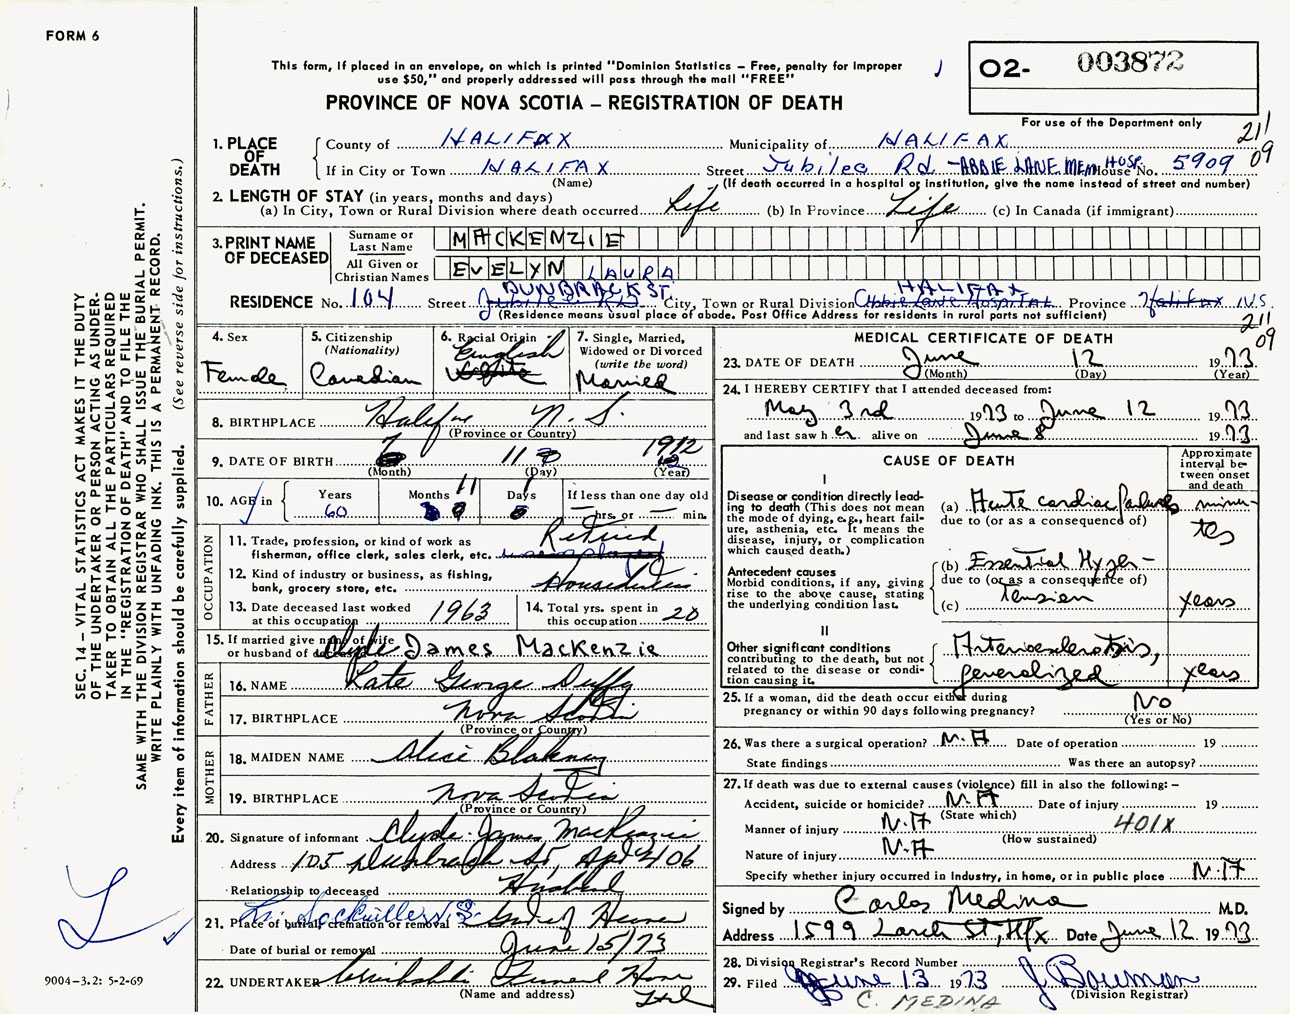 FORM 6
This form, if placed in an envelope, on which is printed "Dominion Statistics – Free, penalty for improper
use $50," and properly addressed will pass through the mail "FREE"
PROVINCE OF NOVA SCOTIA – REGISTRATION OF DEATH
O2- 003872
For use of the Department only
211
09
1. PLACE OF DEATH
County of HALIFAX Municipality of HALIFAX
If in City or Town HALIFAX Street Jubilee Rd -ABBIE LANE MEM HOSP. House No. 5909
(Name) (If death occurred in a hospital or institution, give the name instead of street and number)
2. LENGTH OF STAY (in years, months and days)
(a) In City, Town or Rural Division where death occurred Life (b) In Province Life (c) In Canada (if immigrant)
3. PRINT NAME OF DECEASED
Surname or Last Name MACKENZIE
All Given or Christian Names EVELYN LAURA
DUNBRACK ST HALIFAX
RESIDENCE No. 104 Street Jubilee Rd City, Town or Rural Division Abbie Lane Hospital Province Halifax N.S.
(Residence means usual place of abode. Post Office Address for residents in rural parts not sufficient)
211
09
4. Sex
Female
5. Citizenship
(Nationality)
Canadian
6. Racial Origin
English
White
7. Single, Married,
Widowed or Divorced
(write the word)
Married
8. BIRTHPLACE Halifax N.S.
(Province or Country)
9. DATE OF BIRTH 7 11 1912
(Month) (Day) (Year)
10. AGE in
Years 60
Months 11
Days 1
If less than one day old
— hrs. or — min.
OCCUPATION
11. Trade, profession, or kind of work as
fisherman, office clerk, sales clerk, etc. Retired
unemployed
12. Kind of industry or business, as fishing,
bank, grocery store, etc.
13. Date deceased last worked
at this occupation 1963
14. Total yrs. spent in
this occupation 20
15. If married give name of wife
or husband of deceased Clyde James MacKenzie
FATHER
16. NAME Late George Duffy
17. BIRTHPLACE Nova Scotia
(Province or Country)
MOTHER
18. MAIDEN NAME Alice Blakney
19. BIRTHPLACE Nova Scotia
(Province or Country)
20. Signature of informant Clyde James MacKenzie
Address 105 Dunbrack St, Apt 406
Relationship to deceased Husband
21. Place of burial, cremation or removal Lr. Sackville N.S.
Date of burial or removal June 15/73
22. UNDERTAKER Funeral Home
(Name and address) Hfx
MEDICAL CERTIFICATE OF DEATH
23. DATE OF DEATH June 12 1973
(Month) (Day) (Year)
24. I HEREBY CERTIFY that I attended deceased from:
May 3rd 1973 to June 12 1973
and last saw her alive on June 8 1973
CAUSE OF DEATH
Approximate
interval be-
tween onset
and death
I
Disease or condition directly lead-
ing to death (This does not mean
the mode of dying, e.g., heart fail-
ure, asthenia, etc. It means the
disease, injury, or complication
which caused death.)
(a) Acute cardiac failure minu-
due to (or as a consequence of) tes
Antecedent causes
Morbid conditions, if any, giving
rise to the above cause, stating
the underlying condition last.
(b) Essential Hyper-
due to (or as a consequence of)
(c) tension years
II
Other significant conditions
contributing to the death, but not
related to the disease or condi-
tion causing it.
Arteriosclerosis,
generalized years
25. If a woman, did the death occur either during
pregnancy or within 90 days following pregnancy? No
(Yes or No)
26. Was there a surgical operation? N.A Date of operation 19
State findings Was there an autopsy?
27. If death was due to external causes (violence) fill in also the following: –
Accident, suicide or homicide? N.A Date of injury 19
(State which)
Manner of injury N.A 401X
(How sustained)
Nature of injury N.A
Specify whether injury occurred in industry, in home, or in public place N.A
Signed by Carlos Medina M.D.
Address 1599 Larch St, Hfx Date June 12 1973
28. Division Registrar's Record Number
29. Filed June 13 1973 J Bowman
(Division Registrar)
C. MEDINA
SEC. 14 – VITAL STATISTICS ACT MAKES IT THE DUTY
OF THE UNDERTAKER OR PERSON ACTING AS UNDER-
TAKER TO OBTAIN ALL THE PARTICULARS REQUIRED
IN THE "REGISTRATION OF DEATH" AND TO FILE THE
SAME WITH THE DIVISION REGISTRAR WHO SHALL ISSUE THE BURIAL PERMIT.
WRITE PLAINLY WITH UNFADING INK. THIS IS A PERMANENT RECORD.
Every item of information should be carefully supplied. (See reverse side for instructions.)
9004-3.2: 5-2-69